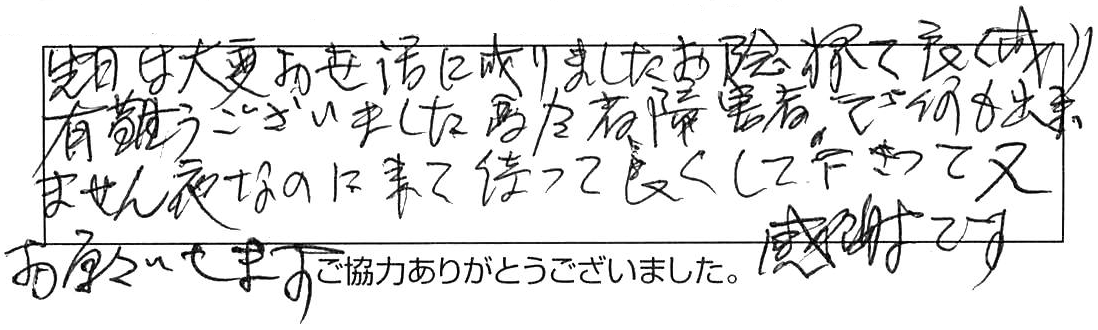 先日は大変お世話に成りましたお陰様で良く成り
有難うございました両方者障害者で何も出来
ません夜なのに来て待って良くして下さって又
感謝です
お願いします
ご協力ありがとうございました。